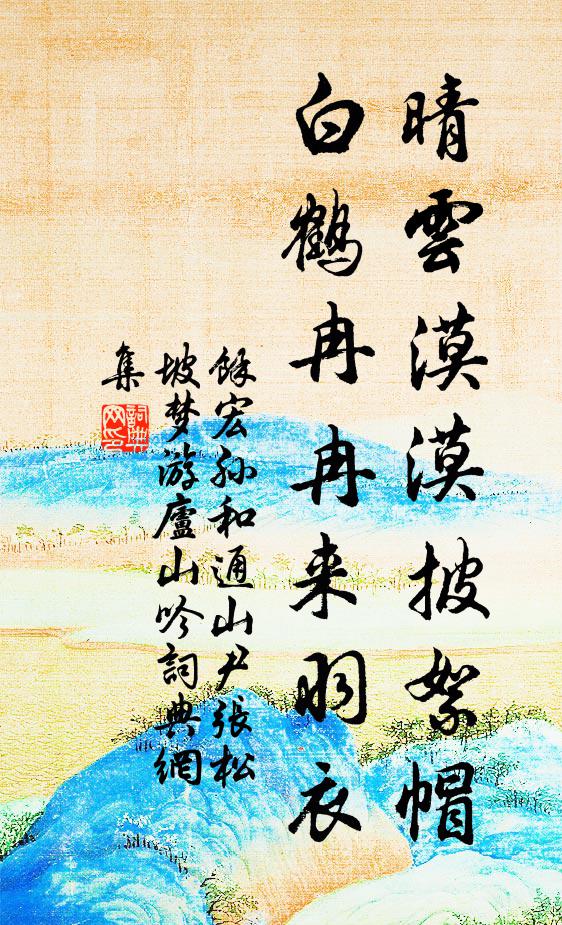 晴雲漠漠披絮帽
白鶴冉冉来明衣
餘宏孙和通山尹張松
坡梦游廬山吟詞典網
集
詞典
网印